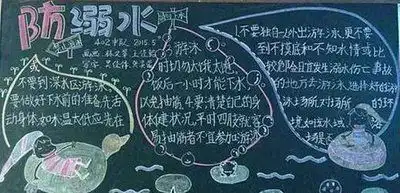 防溺水
2015.5
不要到深水区游泳
要做好下水前的准备,先活
动身体,如水温太低应先在
3.游泳
时切勿太饿、太饱
饭后一小时才能下水
以免抽筋 4.要清楚自己的身
体健状况,平时四肢就容
易抽筋者不宜参加游泳
1.不要独自一人外出游泳,更不要
到不摸底和不知水情或比
较危险且宜发生溺水伤亡事故
的地方去游泳,选择好的游
泳场所,对场所的环
境,如